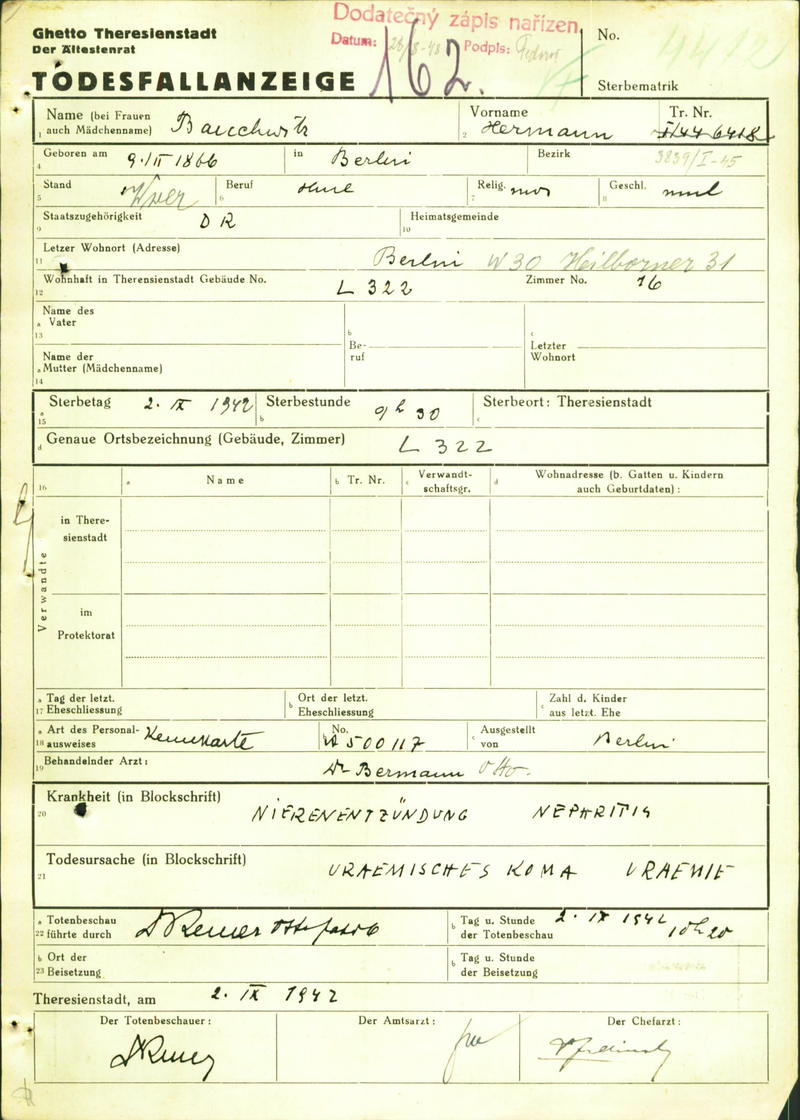 Ghetto Theresienstadt
Der Ältestenrat
TODESFALLANZEIGE
Dodatečný zápis nařízen.
Datum: 28/8-48 Podpis:
162.
No. 4412
Sterbematrik
Name (bei Frauen auch Mädchenname) Bauchwitz
1
Vorname Hermann
2
Tr. Nr. I/44 6418
3839/I-45
Geboren am 9. III 1866
4
in Berlin
Bezirk
Stand
5
Beruf ohne
6
Relig. mos
7
Geschl. mnl
8
Staatszugehörigkeit D R
9
Heimatsgemeinde
10
Letzer Wohnort (Adresse) Berlin W 30 Heilbronner 31
11
Wohnhaft in Therensienstadt Gebäude No. L 322
12
Zimmer No. 16
Name des
a Vater
13
b
Be-
ruf
c
Letzter
Wohnort
Name der
a Mutter (Mädchenname)
14
a Sterbetag 2. IX 1942
15
b Sterbestunde 9h 30
c Sterbeort: Theresienstadt
d Genaue Ortsbezeichnung (Gebäude, Zimmer) L 322
16
a Name
b Tr. Nr.
c Verwandt-
schaftsgr.
d Wohnadresse (b. Gatten u. Kindern
auch Geburtdaten) :
Verwandte
in There-
sienstadt
im
Protektorat
a Tag der letzt.
17 Eheschliessung
b Ort der letzt.
Eheschliessung
c Zahl d. Kinder
aus letzt. Ehe
a Art des Personal-
18 ausweises Kennkarte
b No. A 500117
c Ausgestellt
von Berlin
Behandelnder Arzt : Dr Bermann Otto.
19
Krankheit (in Blockschrift) NIERENENTZÜNDUNG NEPHRITIS
20
Todesursache (in Blockschrift) URAEMISCHES KOMA URAEMIE
21
a Totenbeschau
22 führte durch
b Tag u. Stunde 2. IX 1942
der Totenbeschau 10h20
b Ort der
23 Beisetzung
b Tag u. Stunde
der Beisetzung
Theresienstadt, am 2. IX 1942
Der Totenbeschauer :
Der Amtsarzt :
Der Chefarzt :